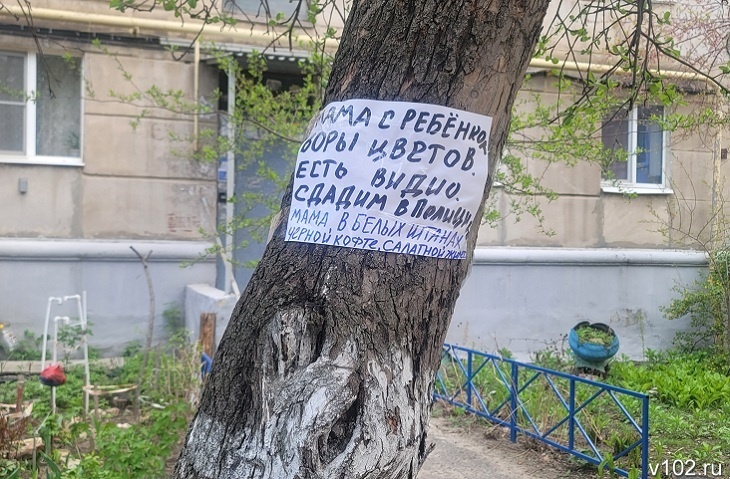 МАМА С РЕБЁНКОМ
ВОРЫ ЦВЕТОВ.
ЕСТЬ ВИДИО.
СДАДИМ В ПОЛИЦИЮ
МАМА В БЕЛЫХ ШТАНАХ,
ЧЕРНОЙ КОФТЕ, САЛАТНОЙ
v102.ru